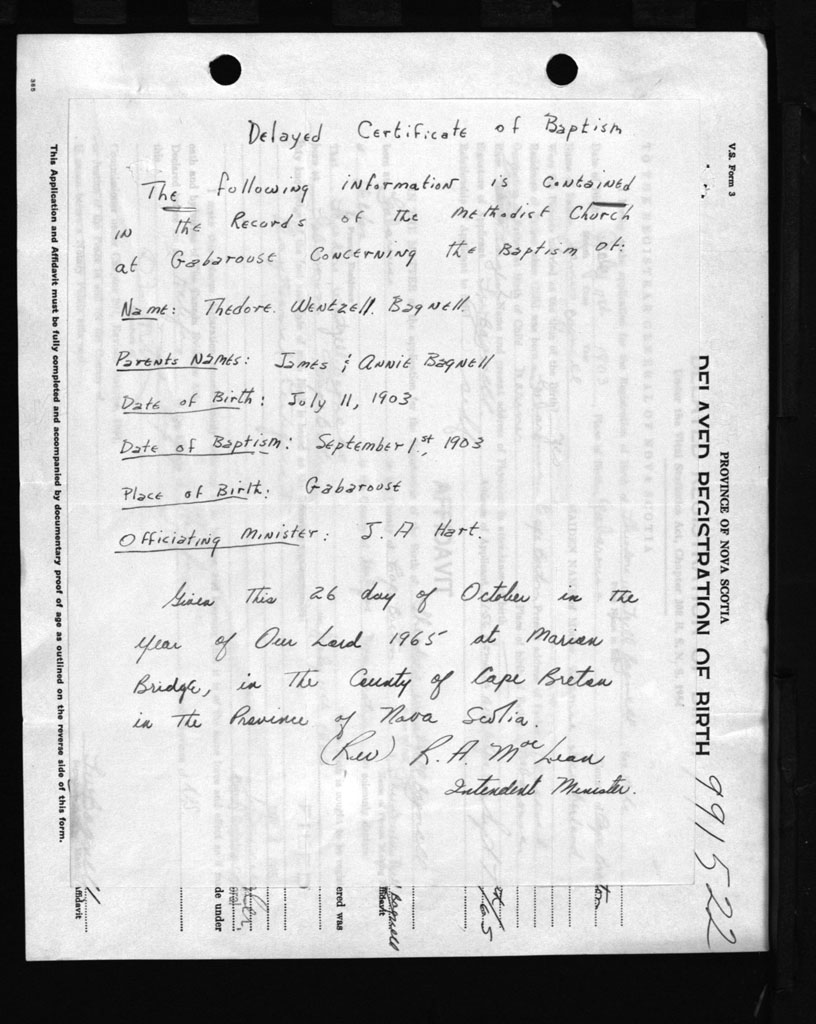 Delayed Certificate of Baptism
The following information is contained
in the Records of the Methodist Church
at Gabarouse Concerning the Baptism of:
Name: Thedore. Wentzell. Bagnell
Parents Names: James & Annie Bagnell
Date of Birth: July 11, 1903
Date of Baptism: September 1st, 1903
Place of Birth: Gabarouse
Officiating Minister: J. A Hart.
Given This 26 day of October in the
year of Our Lord 1965 at Marion
Bridge, in The County of Cape Breton
in The Province of Nova Scotia.
(Rev) R. A. Mac Lean
Intendent Minister.
V.S. Form 3
PROVINCE OF NOVA SCOTIA
DELAYED REGISTRATION OF BIRTH
991522
This Application and Affidavit must be fully completed and accompanied by documentary proof of age as outlined on the reverse side of this form.
385
ered was
de under
ffidavit